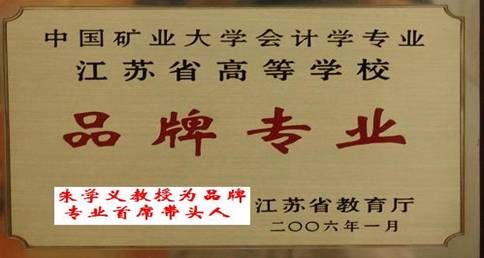 中国矿业大学会计学专业
江苏省高等学校
品牌专业
朱学义教授为品牌
专业首席带头人
江苏省教育厅
二〇〇六年一月